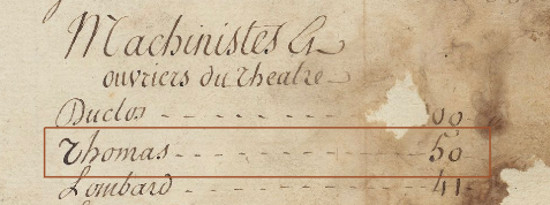 Machinistes &
ouvriers du theatre
Duclos - - - - - - - - 00
Thomas - - - - - - - - 50
Lombard - - - - - - - - 41